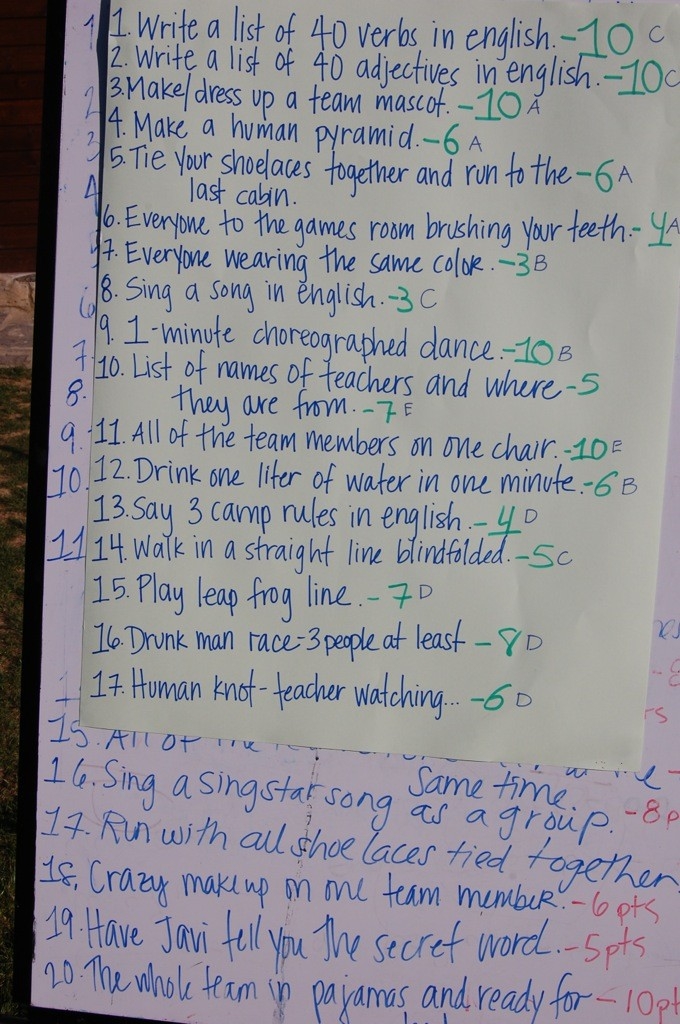 1. Write a list of 40 verbs in english. -10 C
2. Write a list of 40 adjectives in english. -10 C
3. Make/dress up a team mascot. -10 A
4. Make a human pyramid. -6 A
5. Tie your shoelaces together and run to the -6 A
last cabin.
6. Everyone to the games room brushing your teeth. - 4 A
7. Everyone wearing the same color. -3 B
8. Sing a song in english. -3 C
9. 1-minute choreographed dance. -10 B
10. List of names of teachers and where -5
they are from. -7 E
11. All of the team members on one chair. -10 E
12. Drink one liter of water in one minute. -6 B
13. Say 3 camp rules in english. -4 D
14. Walk in a straight line blindfolded. -5 C
15. Play leap frog line. - 7 D
16. Drunk man race-3 people at least - 8 D
17. Human knot - teacher watching... -6 D
1
2
3
4
6
7.
8.
9.
10.
11
15. All of the
same time.
16. Sing a singstar song as a group. -8p
17. Run with all shoe laces tied together
18. Crazy makeup on one team member. -6 pts
19. Have Javi tell you the secret word. -5pts
20. The whole team in pajamas and ready for -10pt